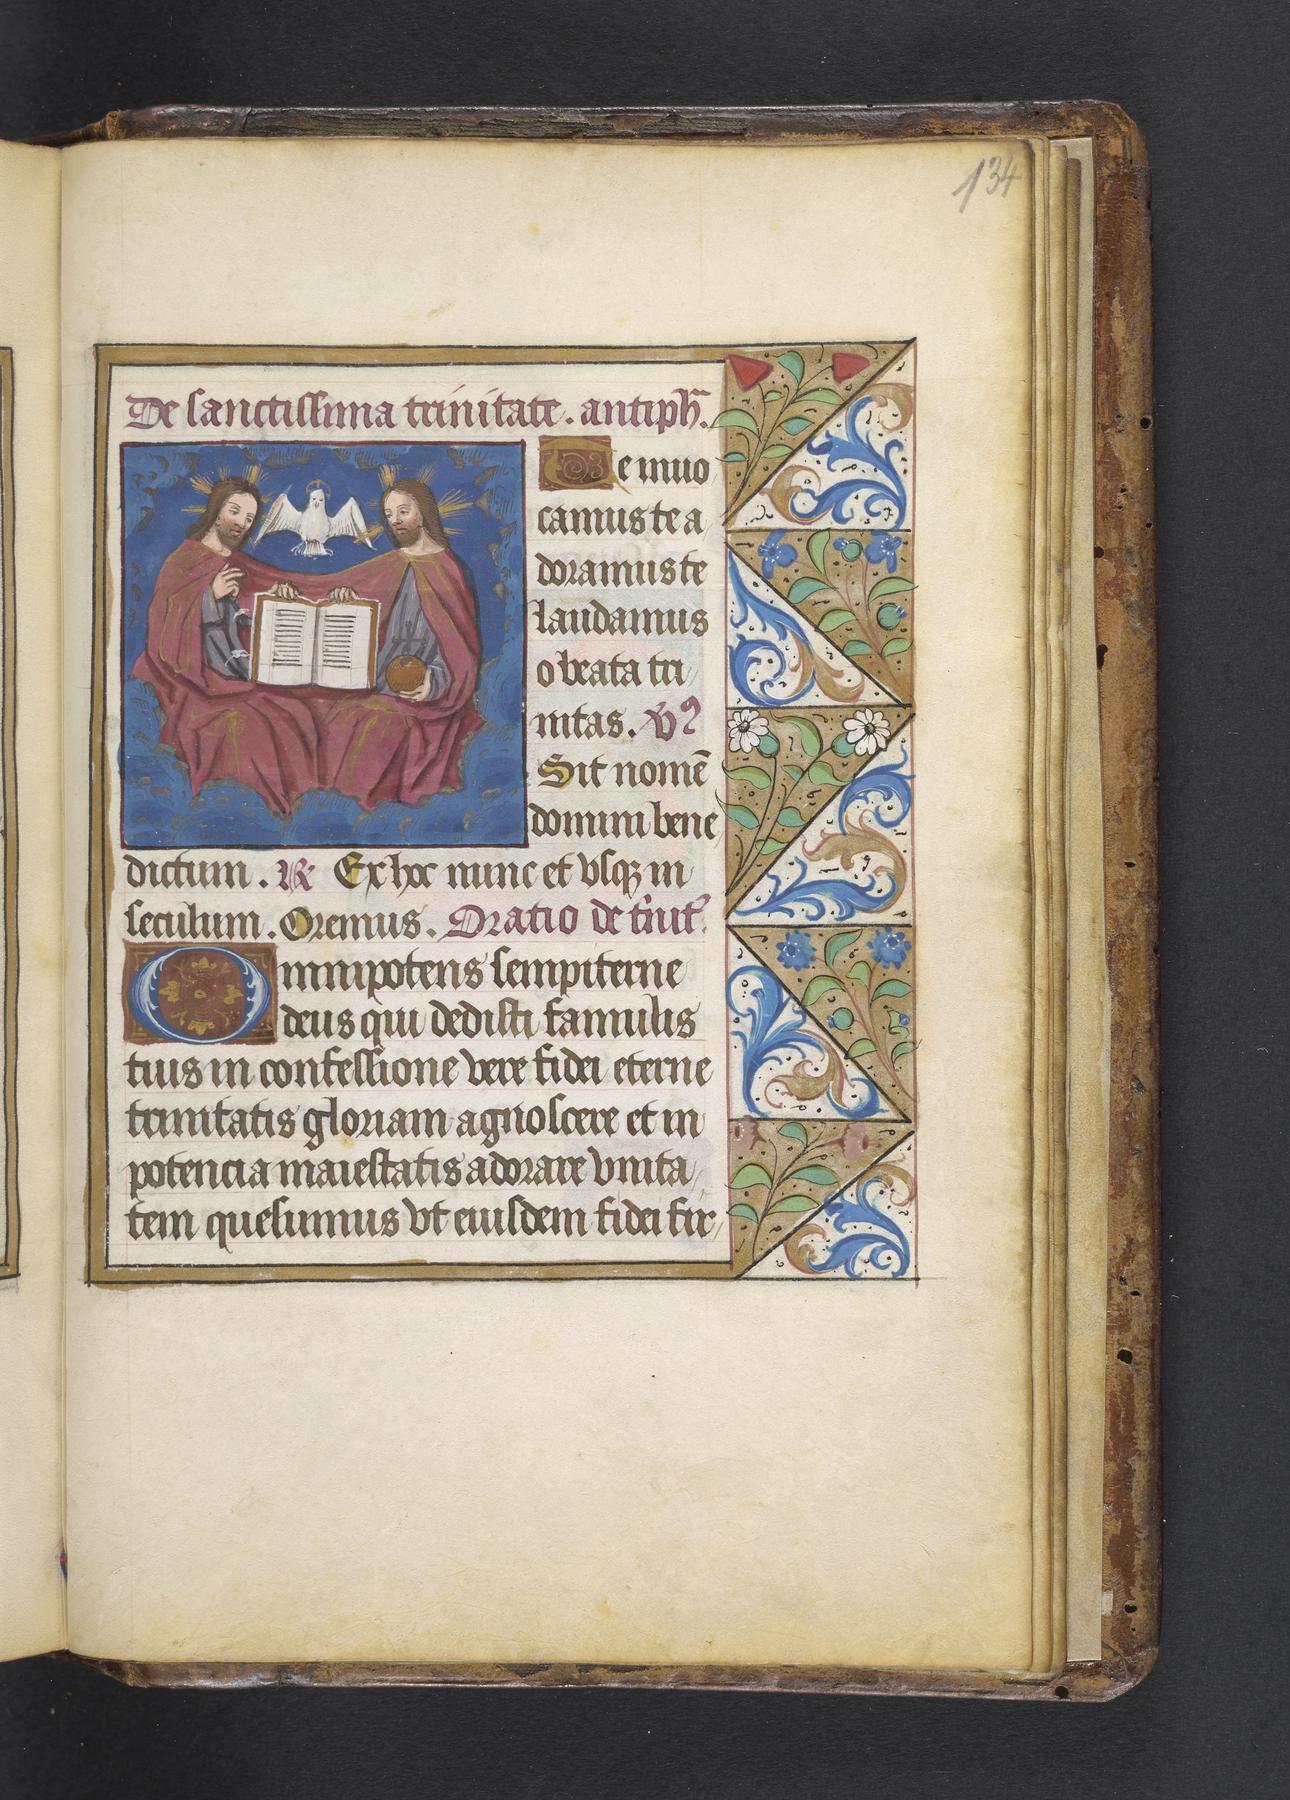 134
De sanctissima trinitate. antiph̄.
Te inuo
camus te a
doramus te
laudamus
o beata tri
nitas. V̉
Sit nomē
domini bene
dictum. ℟ Ex hoc nunc et vsqꝫ in
seculum. Oremus. Oratio de t̉nit̉.
Omnipotens sempiterne
deus qui dedisti famulis
tuis in confessione vere fidei eterne
trinitatis gloriam agnoscere et in
potencia maiestatis adorare vnita/
tem quesumus vt eiusdem fidei fir/